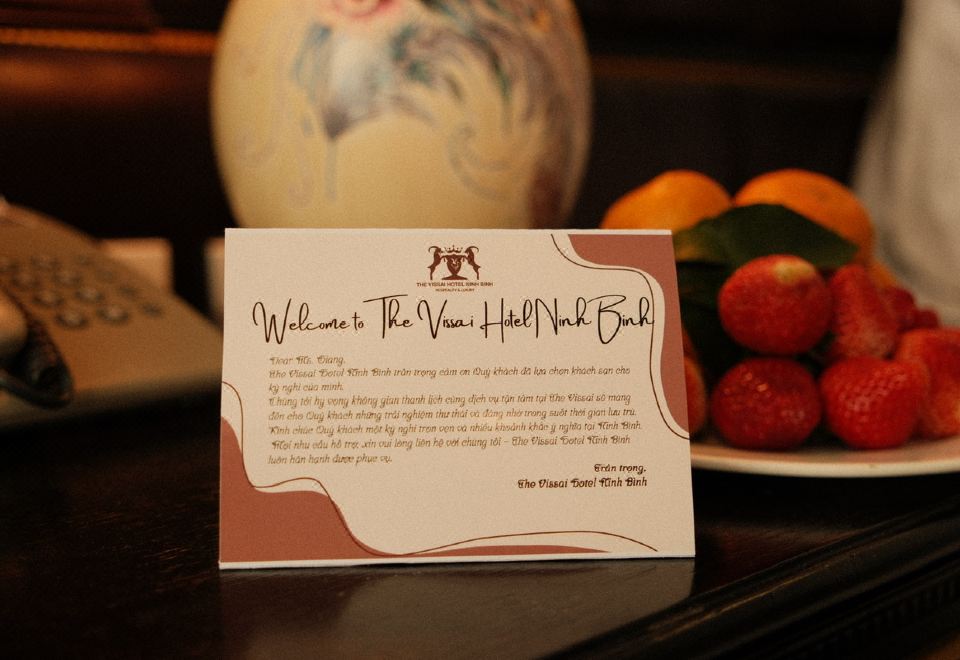 THE VISSAI HOTEL NINH BINH
HOSPITALITY & LUXURY
Welcome to The Vissai Hotel Ninh Binh
Dear Ms. Giang,
The Vissai Hotel Ninh Bình trân trọng cảm ơn Quý khách đã lựa chọn khách sạn cho
kỳ nghỉ của mình.
Chúng tôi hy vọng không gian thanh lịch cùng dịch vụ tận tâm tại The Vissai sẽ mang
đến cho Quý khách những trải nghiệm thư thái và đáng nhớ trong suốt thời gian lưu trú.
Kính chúc Quý khách một kỳ nghỉ trọn vẹn và nhiều khoảnh khắc ý nghĩa tại Ninh Bình.
Mọi nhu cầu hỗ trợ, xin vui lòng liên hệ với chúng tôi – The Vissai Hotel Ninh Bình
luôn hân hạnh được phục vụ.
Trân trọng,
The Vissai Hotel Ninh Bình